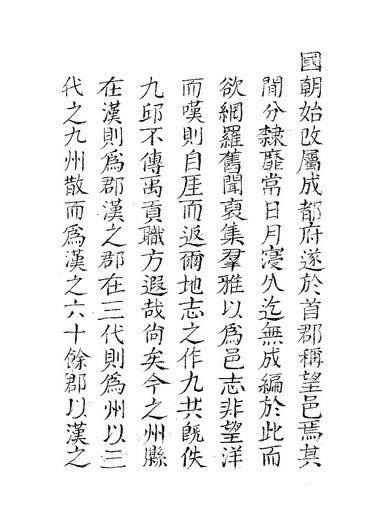 國朝始改屬成都府遂於首郡稱望邑焉其
間分隸靡常日月寖久迄無成編於此而
欲網羅舊聞裒集羣雅以爲邑志非望洋
而嘆則自厓而返爾地志之作九共旣佚
九邱不傳禹貢職方遐哉尙矣今之州縣
在漢則爲郡漢之郡在三代則爲州以三
代之九州散而爲漢之六十餘郡以漢之